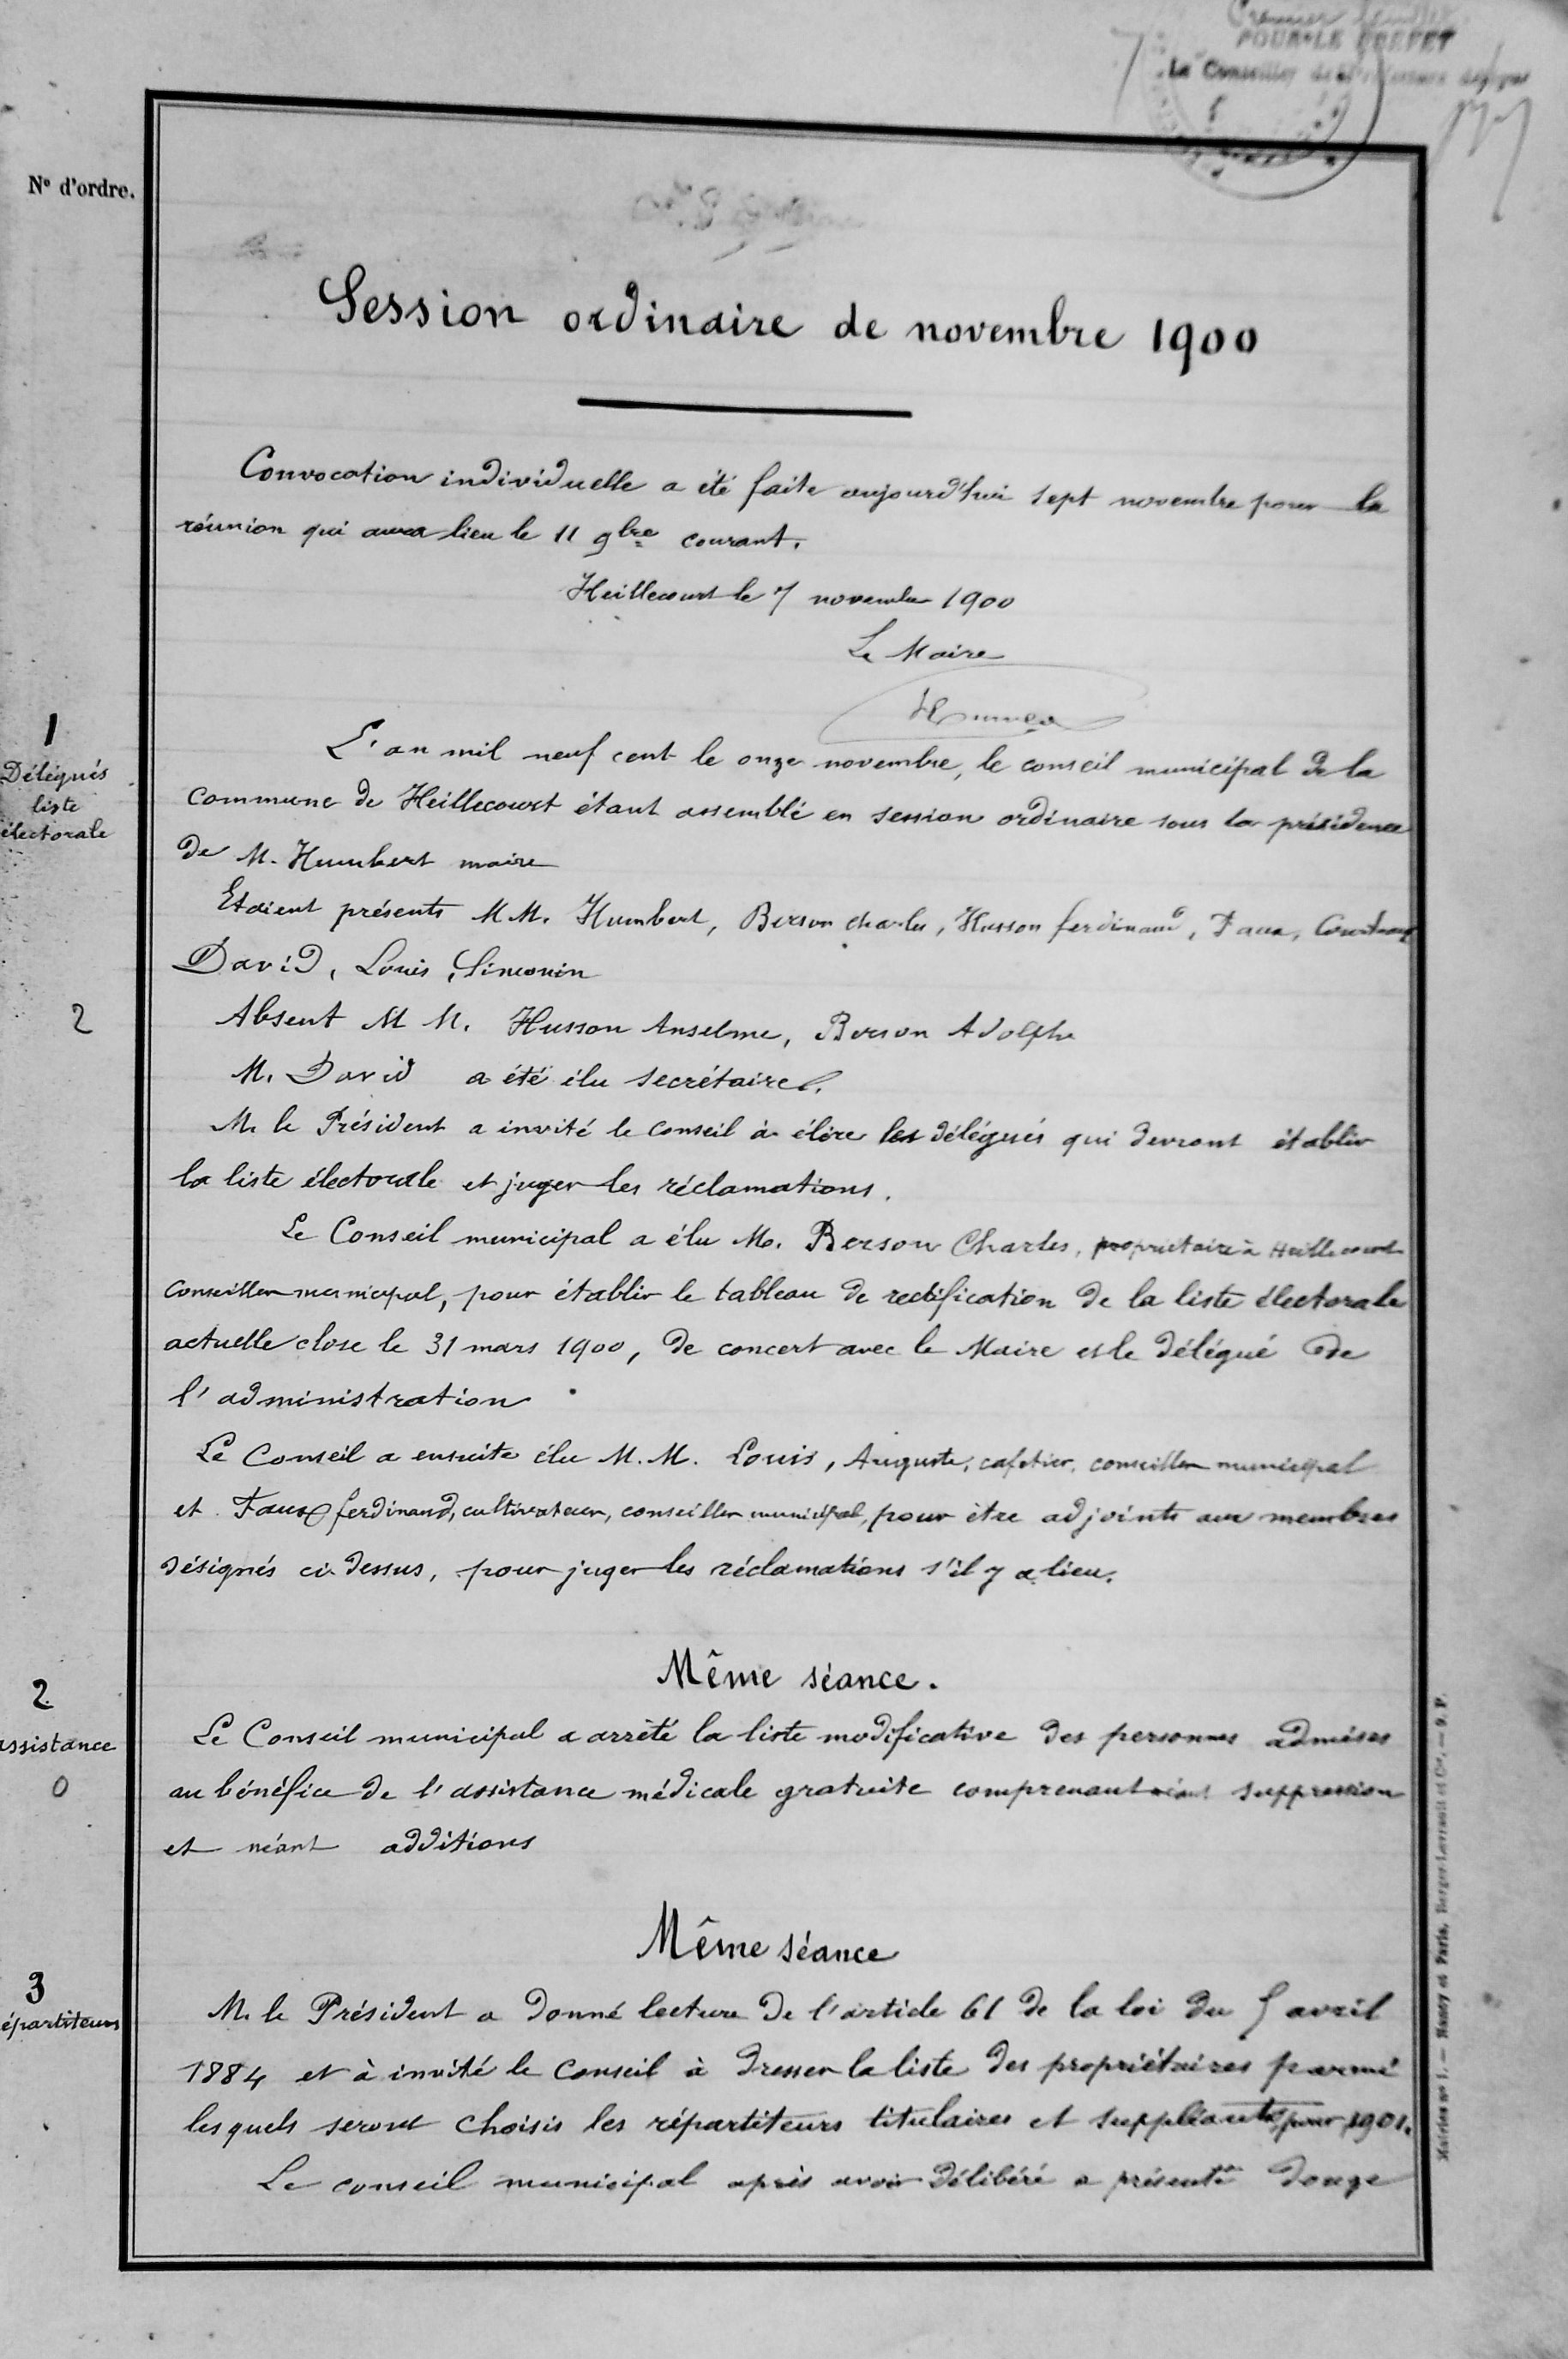 Premier
POUR LE PREFET
Le Conseiller de Préfecture délégué
N° d'ordre.
Session ordinaire de novembre 1900
Convocation individuelle a été faite aujourd'hui sept novembre pour la
réunion qui aura lieu le 11 9bre courant.
Heillecourt le 7 novembre 1900
Le Maire
1
Délégués
liste
électorale
L'an mil neuf cent le onze novembre, le conseil municipal de la
commune de Heillecourt étant assemblé en session ordinaire sous la présidence
de M. Humbert maire
Etaient présents MM. Humbert, Berson Charles, Husson ferdinand, Faux,
David, Louis, Simonin
2
Absent MM. Husson Anselme, Berson Adolphe
M. David a été élu secrétaire.
M. le Président a invité le conseil à élire les délégués qui devront établir
la liste électorale et juger les réclamations.
Le Conseil municipal a élu M. Berson Charles, propriétaire à Heillecourt
conseiller municipal, pour établir le tableau de rectification de la liste électorale
actuelle close le 31 mars 1900, de concert avec le Maire et le délégué de
l'administration
Le Conseil a ensuite élu M.M. Louis, Auguste, cafetier, conseiller municipal
et Faux ferdinand, cultivateur, conseiller municipal, pour être adjoints aux membres
désignés ci-dessus, pour juger les réclamations s'il y a lieu.
Même séance.
2
assistance
0
Le Conseil municipal a arrêté la liste modificative des personnes admises
au bénéfice de l'assistance médicale gratuite comprenant néant suppression
et néant additions
Même séance
3
épartiteurs
M. le Président a donné lecture de l'article 61 de la loi du 5 avril
1884 et à invité le conseil à dresser la liste des propriétaires parmi
lesquels seront choisis les répartiteurs titulaires et suppléants pour 1901.
Le conseil municipal après avoir délibéré a présenté douze
Mairies n° 1. — Nancy et Paris, Berger-Levrault et Cie. — 9. P.